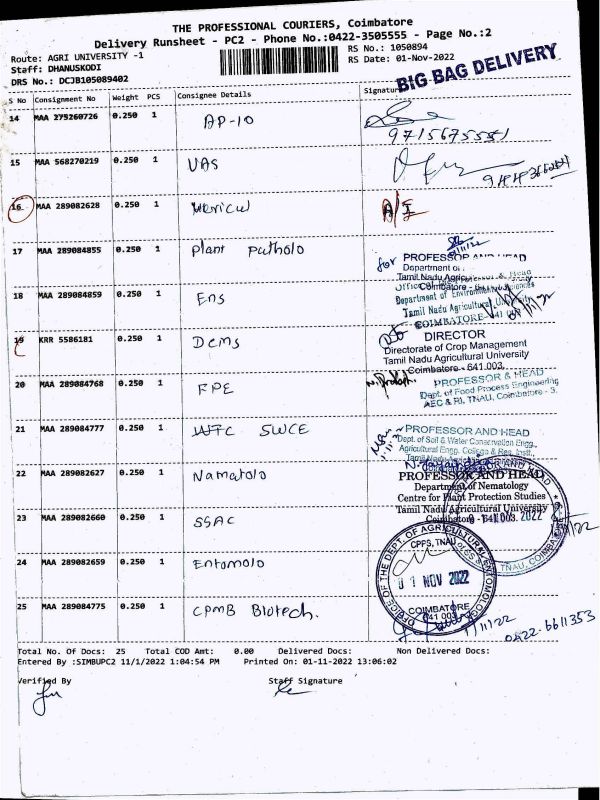 THE PROFESSIONAL COURIERS, Coimbatore
Delivery Runsheet - PC2 - Phone No.:0422-3505555 - Page No.:2
Route: AGRI UNIVERSITY -1
RS No.: 1050894
Staff: DHANUSKODI
RS Date: 01-Nov-2022
DRS No.: DCJB105089402
BIG BAG DELIVERY
S No Consignment No Weight PCS Consignee Details Signature
14 MAA 275260726 0.250 1 AP-10
9715675551
15 MAA 568270219 0.250 1 VAS
16 MAA 289082628 0.250 1
17 MAA 289084855 0.250 1 Plant Patholo
for PROFESSOR AND HEAD
Department of
Tamil Nadu
Coimbatore -
18 MAA 289084859 0.250 1 Ens
Department of Environmental Sciences
Tamil Nadu Agricultural
COIMBATORE-
19 KRR 5586181 0.250 1 DCMS
DIRECTOR
Directorate of Crop Management
Tamil Nadu Agricultural University
Coimbatore - 641 003.
20 MAA 289084768 0.250 1 FPE
PROFESSOR & HEAD
Dept. of Food Process Engineering
AEC & RI, TNAU, Coimbatore - 3.
21 MAA 289084777 0.250 1 SWCE
PROFESSOR AND HEAD
Dept. of Soil & Water Conservation Engg.,
Agricultural Engg. College & Res. Instt.,
22 MAA 289082627 0.250 1 Namatolo
PROFESSOR AND HEAD
Department of Nematology
Centre for Plant Protection Studies
Tamil Nadu Agricultural University
Coimbatore - 641 003.
23 MAA 289082660 0.250 1 SSAC
NOV 2022
TNAU, COIMBA
24 MAA 289082659 0.250 1 Entomolo
OFFICE OF THE DEPT. OF AGRICULTURAL ENTOMOLOGY
CPPS, TNAU
01 NOV 2022
COIMBATORE
641 003
25 MAA 289084775 0.250 1 CPMB Biotech.
0422-6611353
Total No. Of Docs: 25 Total COD Amt: 0.00 Delivered Docs: Non Delivered Docs:
Entered By :SIMBUPC2 11/1/2022 1:04:54 PM Printed On: 01-11-2022 13:06:02
Verified By Staff Signature